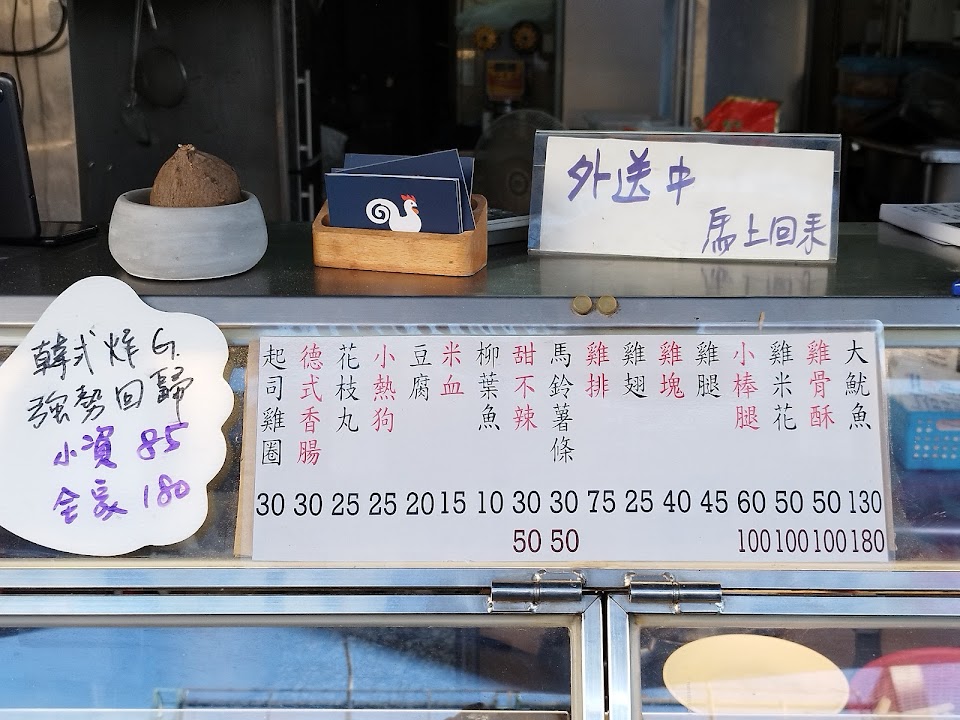 外送中
馬上回來
韓式炸G.
強勢回歸
小資 85
全家 180
大魷魚 130 180
雞骨酥 50 100
雞米花 50 100
小棒腿 60 100
雞腿 45
雞塊 40
雞翅 25
雞排 75
馬鈴薯條 30 50
甜不辣 30 50
柳葉魚 10
米血 15
豆腐 20
小熱狗 25
花枝丸 25
德式香腸 30
起司雞圈 30